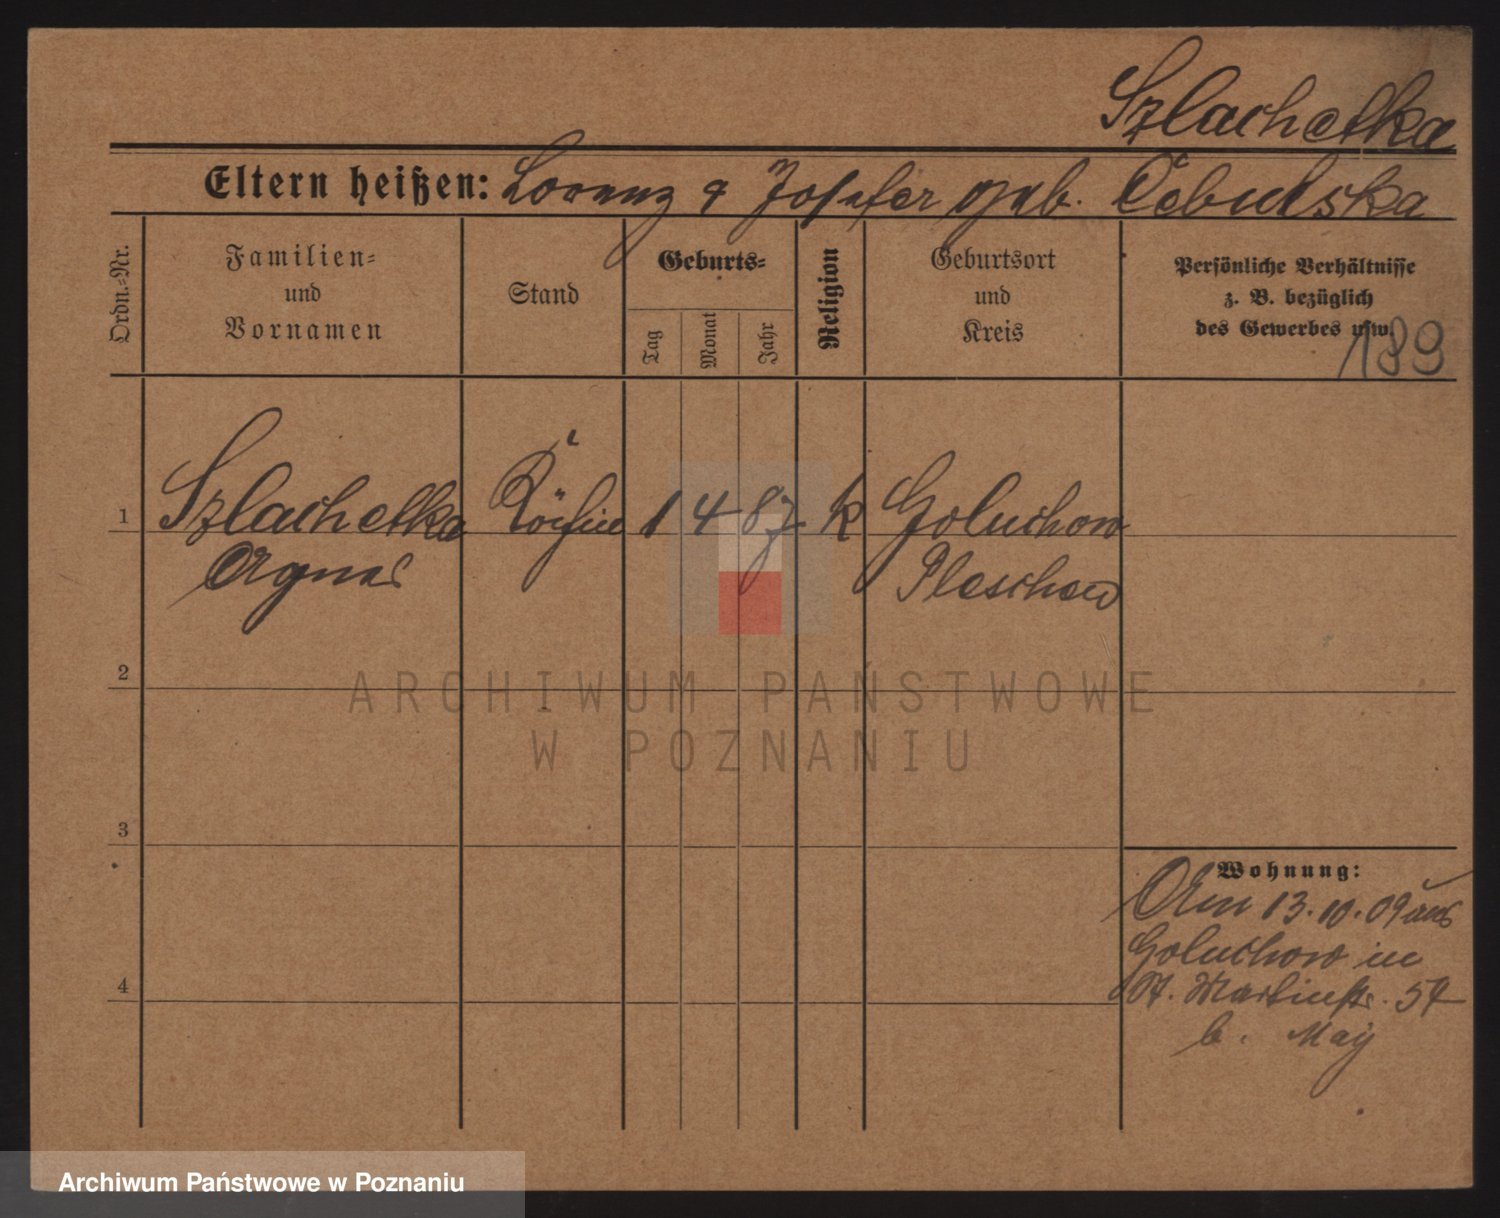 Szlachetka
Eltern heißen: Lorenz & Josefa geb. Cebulska
Ordn.-Nr.
Familien-
und
Vornamen
Stand
Geburts-
Tag
Monat
Jahr
Religion
Geburtsort
und
Kreis
Persönliche Verhältnisse
z. B. bezüglich
des Gewerbes usw.
189
1 Szlachetka Köchin 1 4 87 k Goluchow
Agnes Pleschen
2
3
4
Wohnung:
Am 13.10.09 aus
Goluchow in
St. Martinstr. 54
b. May
ARCHIWUM PAŃSTWOWE
W POZNANIU
Archiwum Państwowe w Poznaniu